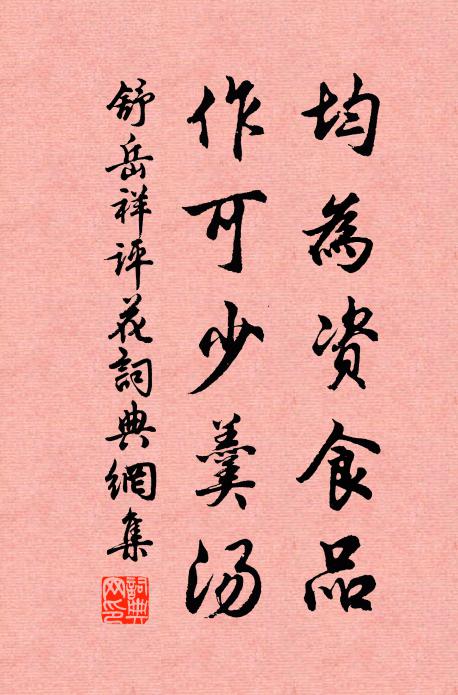 均為资食品
作可少羹汤
舒岳祥评花詞典網集
詞典网印